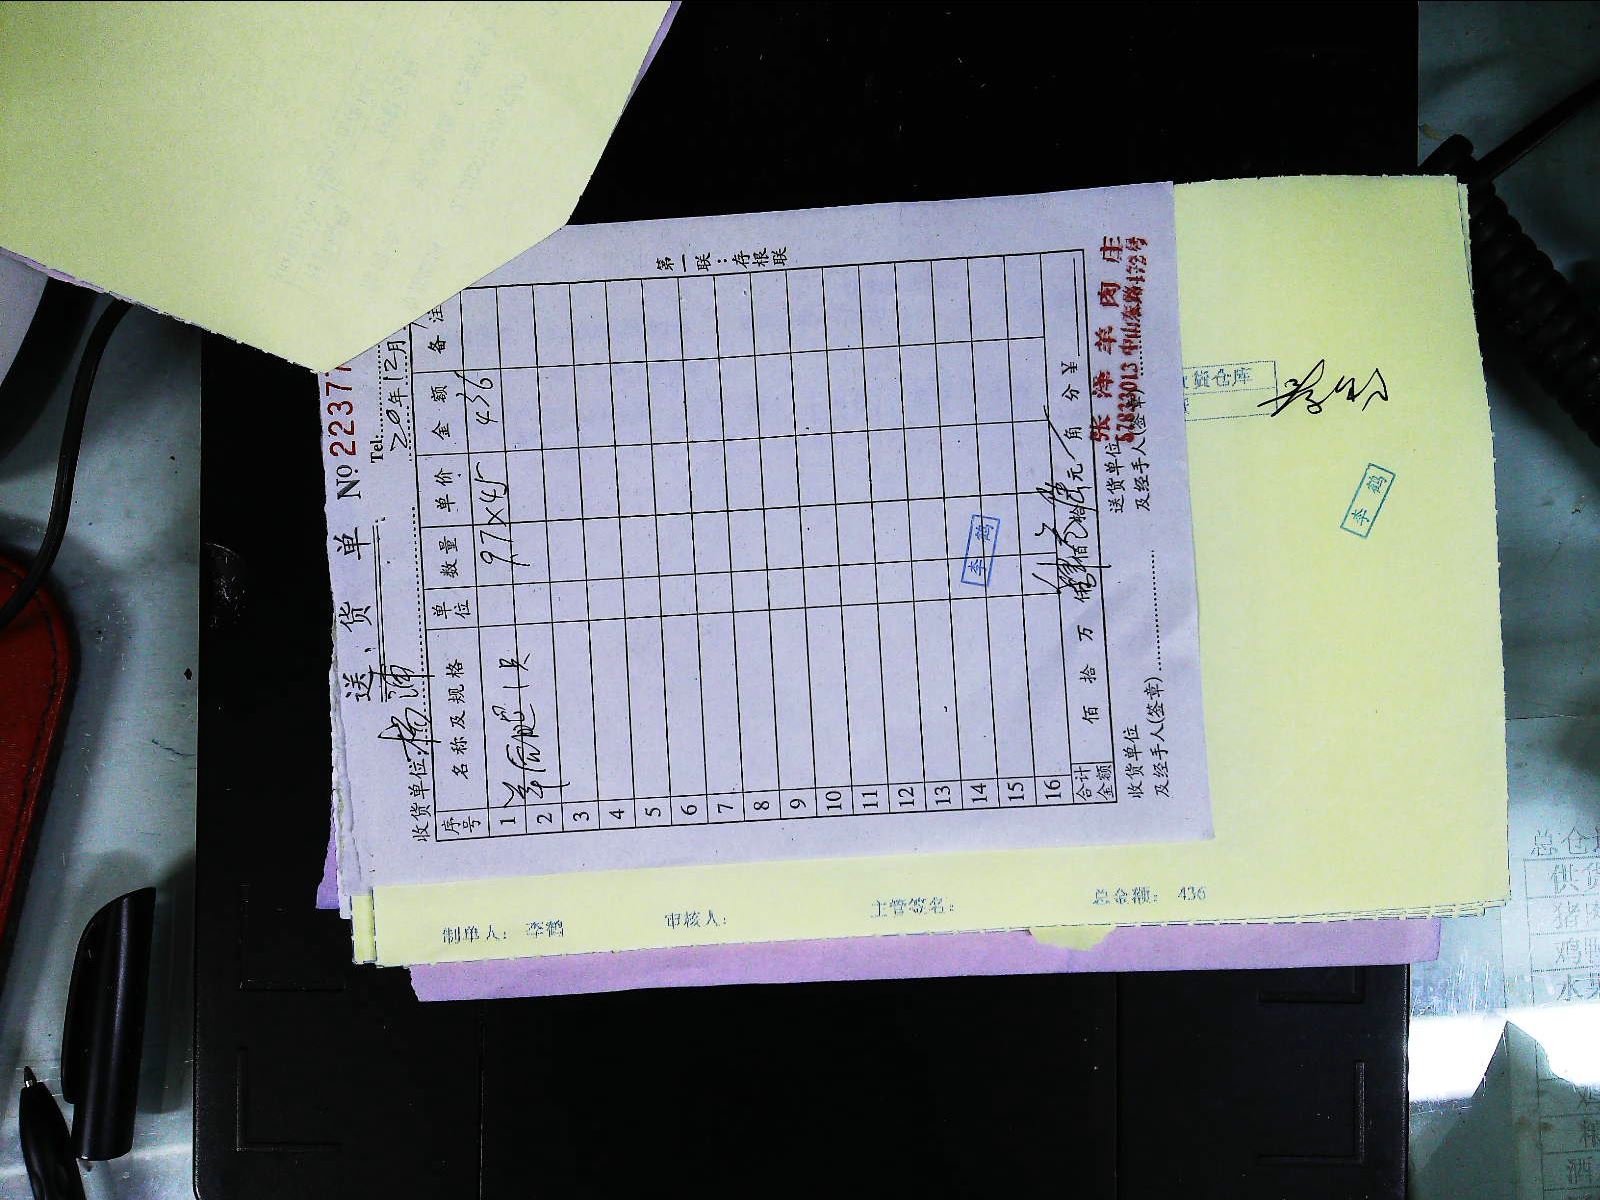 送 货 单 № 22377
Tel:
收货单位: 杨浦 20 年 12 月
序号 名称及规格 单位 数量 单价 金额 备注
1 羊后腿1只 9.7×45 436
2
3
4
5
6
7
8
9
10
11
12
13
14
15
16
李鹤
合计金额 佰 拾 万 仟 佰 拾 元 角 分 ¥
收货单位及经手人(签章)
送货单位及经手人(签章)
张泽羊肉庄
57823013 中山东路172号
第一联:存根联
制单人: 李鹤 审核人: 主管签名: 总金额: 436
仓库
李鹤
总仓
供货
猪肉
鸡鸭
水
酒